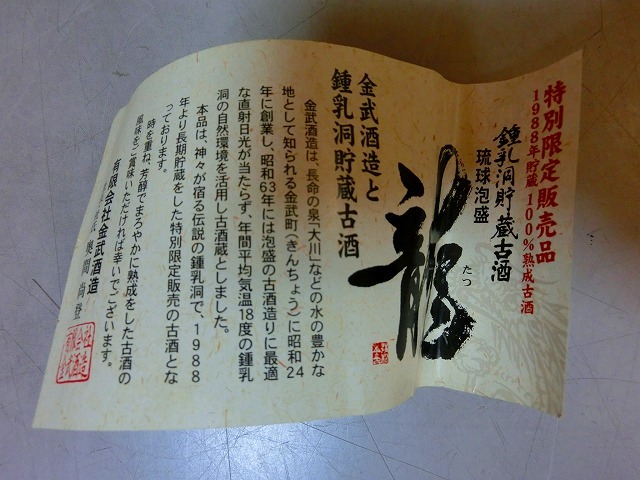 特別限定販売品
1988年貯蔵 100%熟成古酒
鍾乳洞貯蔵古酒
琉球泡盛
龍
たつ
金武酒造と
鍾乳洞貯蔵古酒
金武酒造は、長命の泉「大川」などの水の豊かな
地として知られる金武町(きんちょう)に昭和24
年に創業し、昭和63年には泡盛の古酒造りに最適
な直射日光が当たらず、年間平均気温18度の鍾乳
洞の自然環境を活用し古酒蔵としました。
本品は、神々が宿る伝説の鍾乳洞で、1988
年より長期貯蔵をした特別限定販売の古酒とな
っております。
時を重ね、芳醇でまろやかに熟成をした古酒の
風味をご賞味いただければ幸いでございます。
有限会社金武酒造
奥間尚登
有限会社
金武酒造